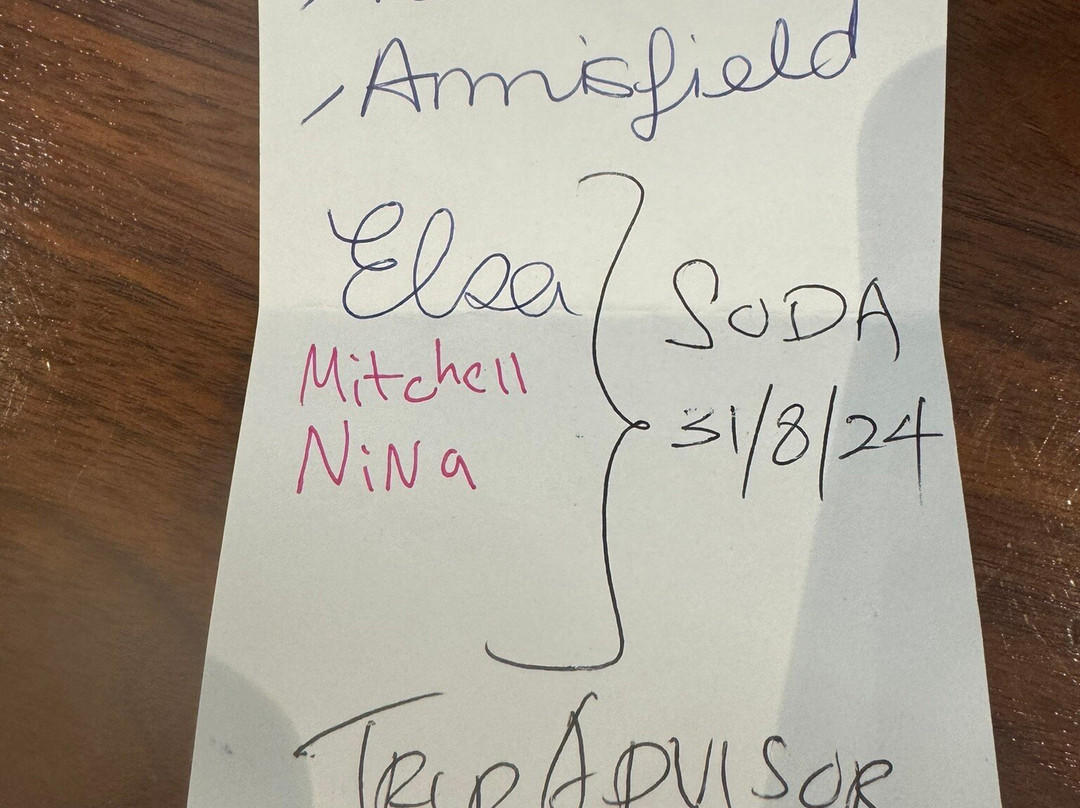 , Amisfield
Elsa
Mitchell
NiNa
SODA
31/8/24
TRIPADVISOR